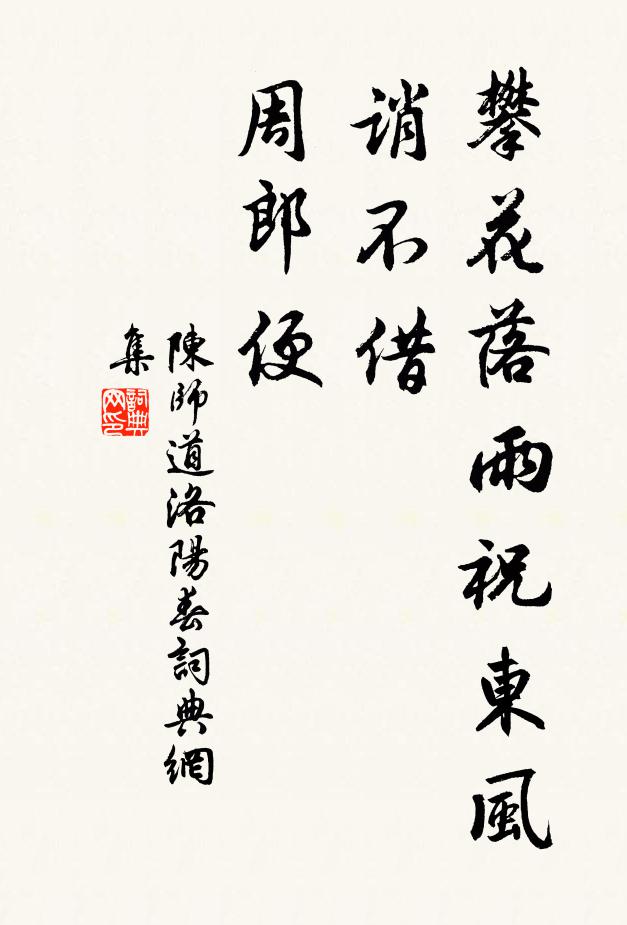 攀花落雨祝東風
誚不借
周郎便
陳師道洛陽春詞典網
集
詞典
网印